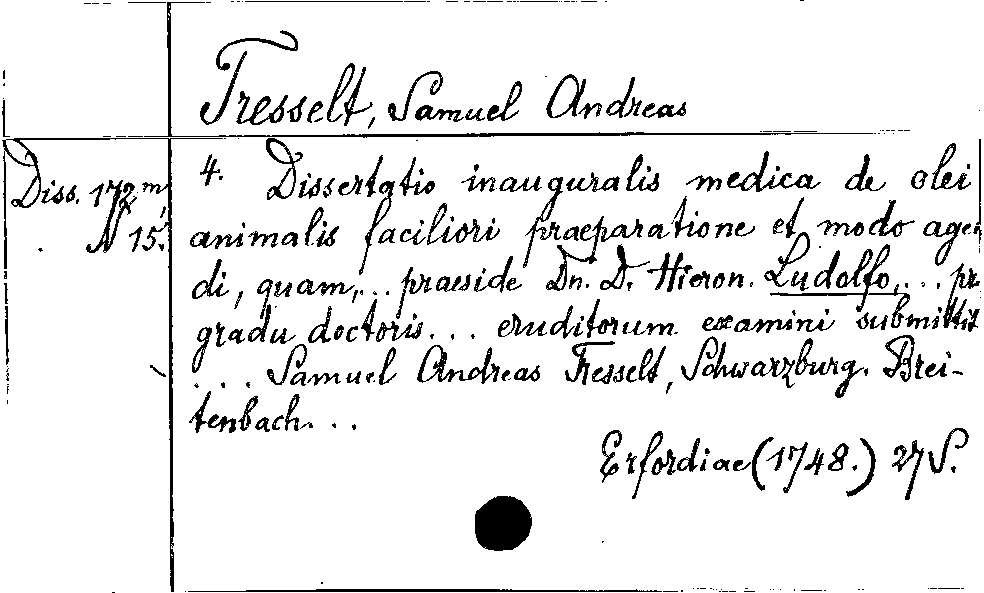 Tresselt, Samuel Andreas
Diss. 172 m,
N 15.
4. Dissertatio inauguralis medica de olei
animalis faciliori praeparatione et modo agen
di, quam,... praeside Dn. D. Hieron. Ludolfo,... pr
gradu doctoris... eruditorum examini submittit
.... Samuel Andreas Tresselt, Schwarzburg. Brei-
tenbach...
Erfordiae (1748.) 27 S.